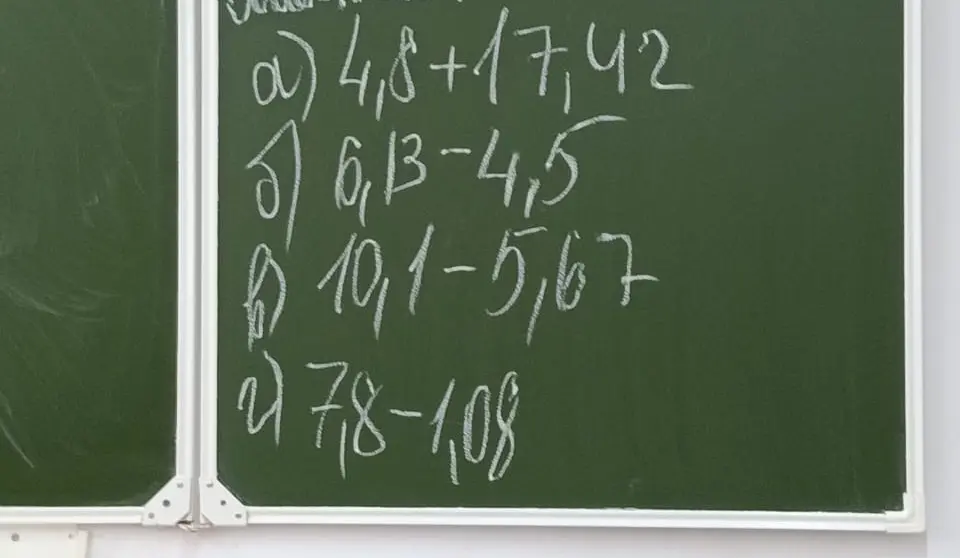 а) 4,8+17,42
б) 6,13-4,5
в) 10,1-5,67
г) 7,8-1,08